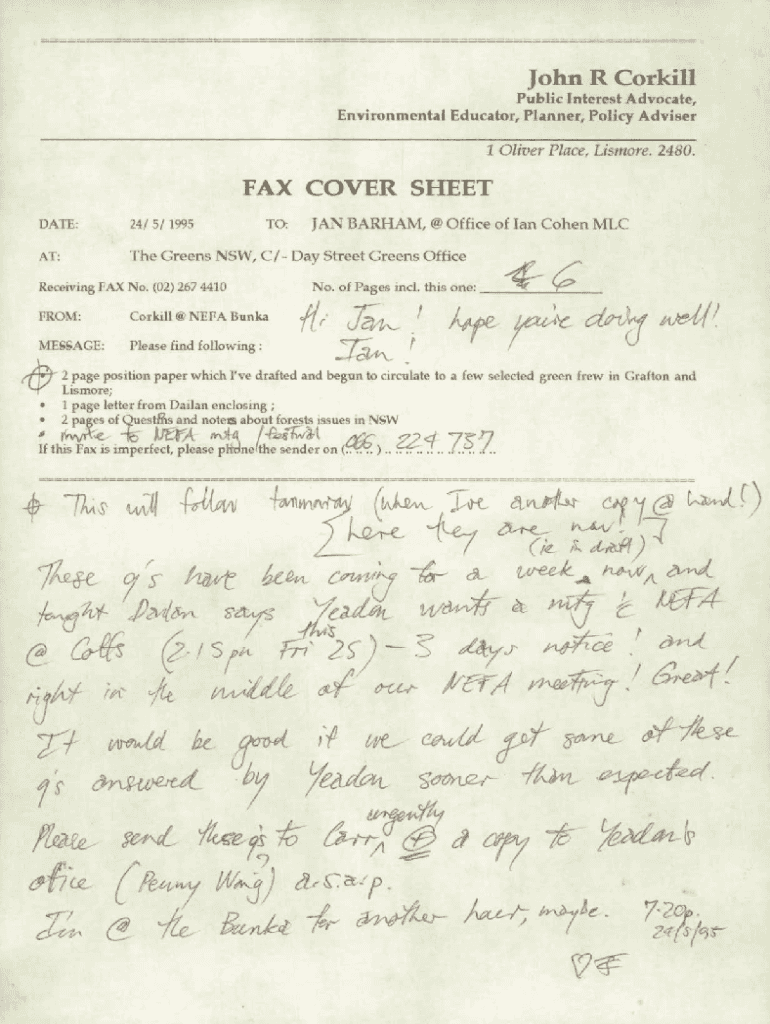 John R Corkill
Public Interest Advocate,
Environmental Educator, Planner, Policy Adviser
1 Oliver Place, Lismore. 2480.
FAX COVER SHEET
DATE: 24/ 5/ 1995 TO: JAN BARHAM, @ Office of Ian Cohen MLC
AT: The Greens NSW, C/- Day Street Greens Office
Receiving FAX No. (02) 267 4410 No. of Pages incl. this one: 6
FROM: Corkill @ NEFA Bunka Hi Jan! hope you're doing well!
MESSAGE: Please find following : Ian!
⊕ 2 page position paper which I've drafted and begun to circulate to a few selected green frew in Grafton and
Lismore;
• 1 page letter from Dailan enclosing ;
• 2 pages of Questns and notes about forests issues in NSW
• invite to NEFA mtg / festival
If this Fax is imperfect, please phone the sender on (066) 224 737
⊕ This will follow tommorow (when I've another copy @ hand!)
[here they are now!]
(ie in draft)
These q's have been coming for a week now, and
tonght Dailan says Yeadon wants a mtg c̄ NEFA
@ Coffs (2.15 pm this Fri 25) – 3 days notice! and
right in the middle of our NEFA meeting! Great!
It would be good if we could get some of these
q's answered by Yeadon sooner than expected.
Please send these q's to Carr urgently ⊕ a copy to Yeadon's
office (Penny Wong?) a.s.a.p.
I'm @ the Bunka for another hour, maybe. 7.20p.
24/5/95
♡ J